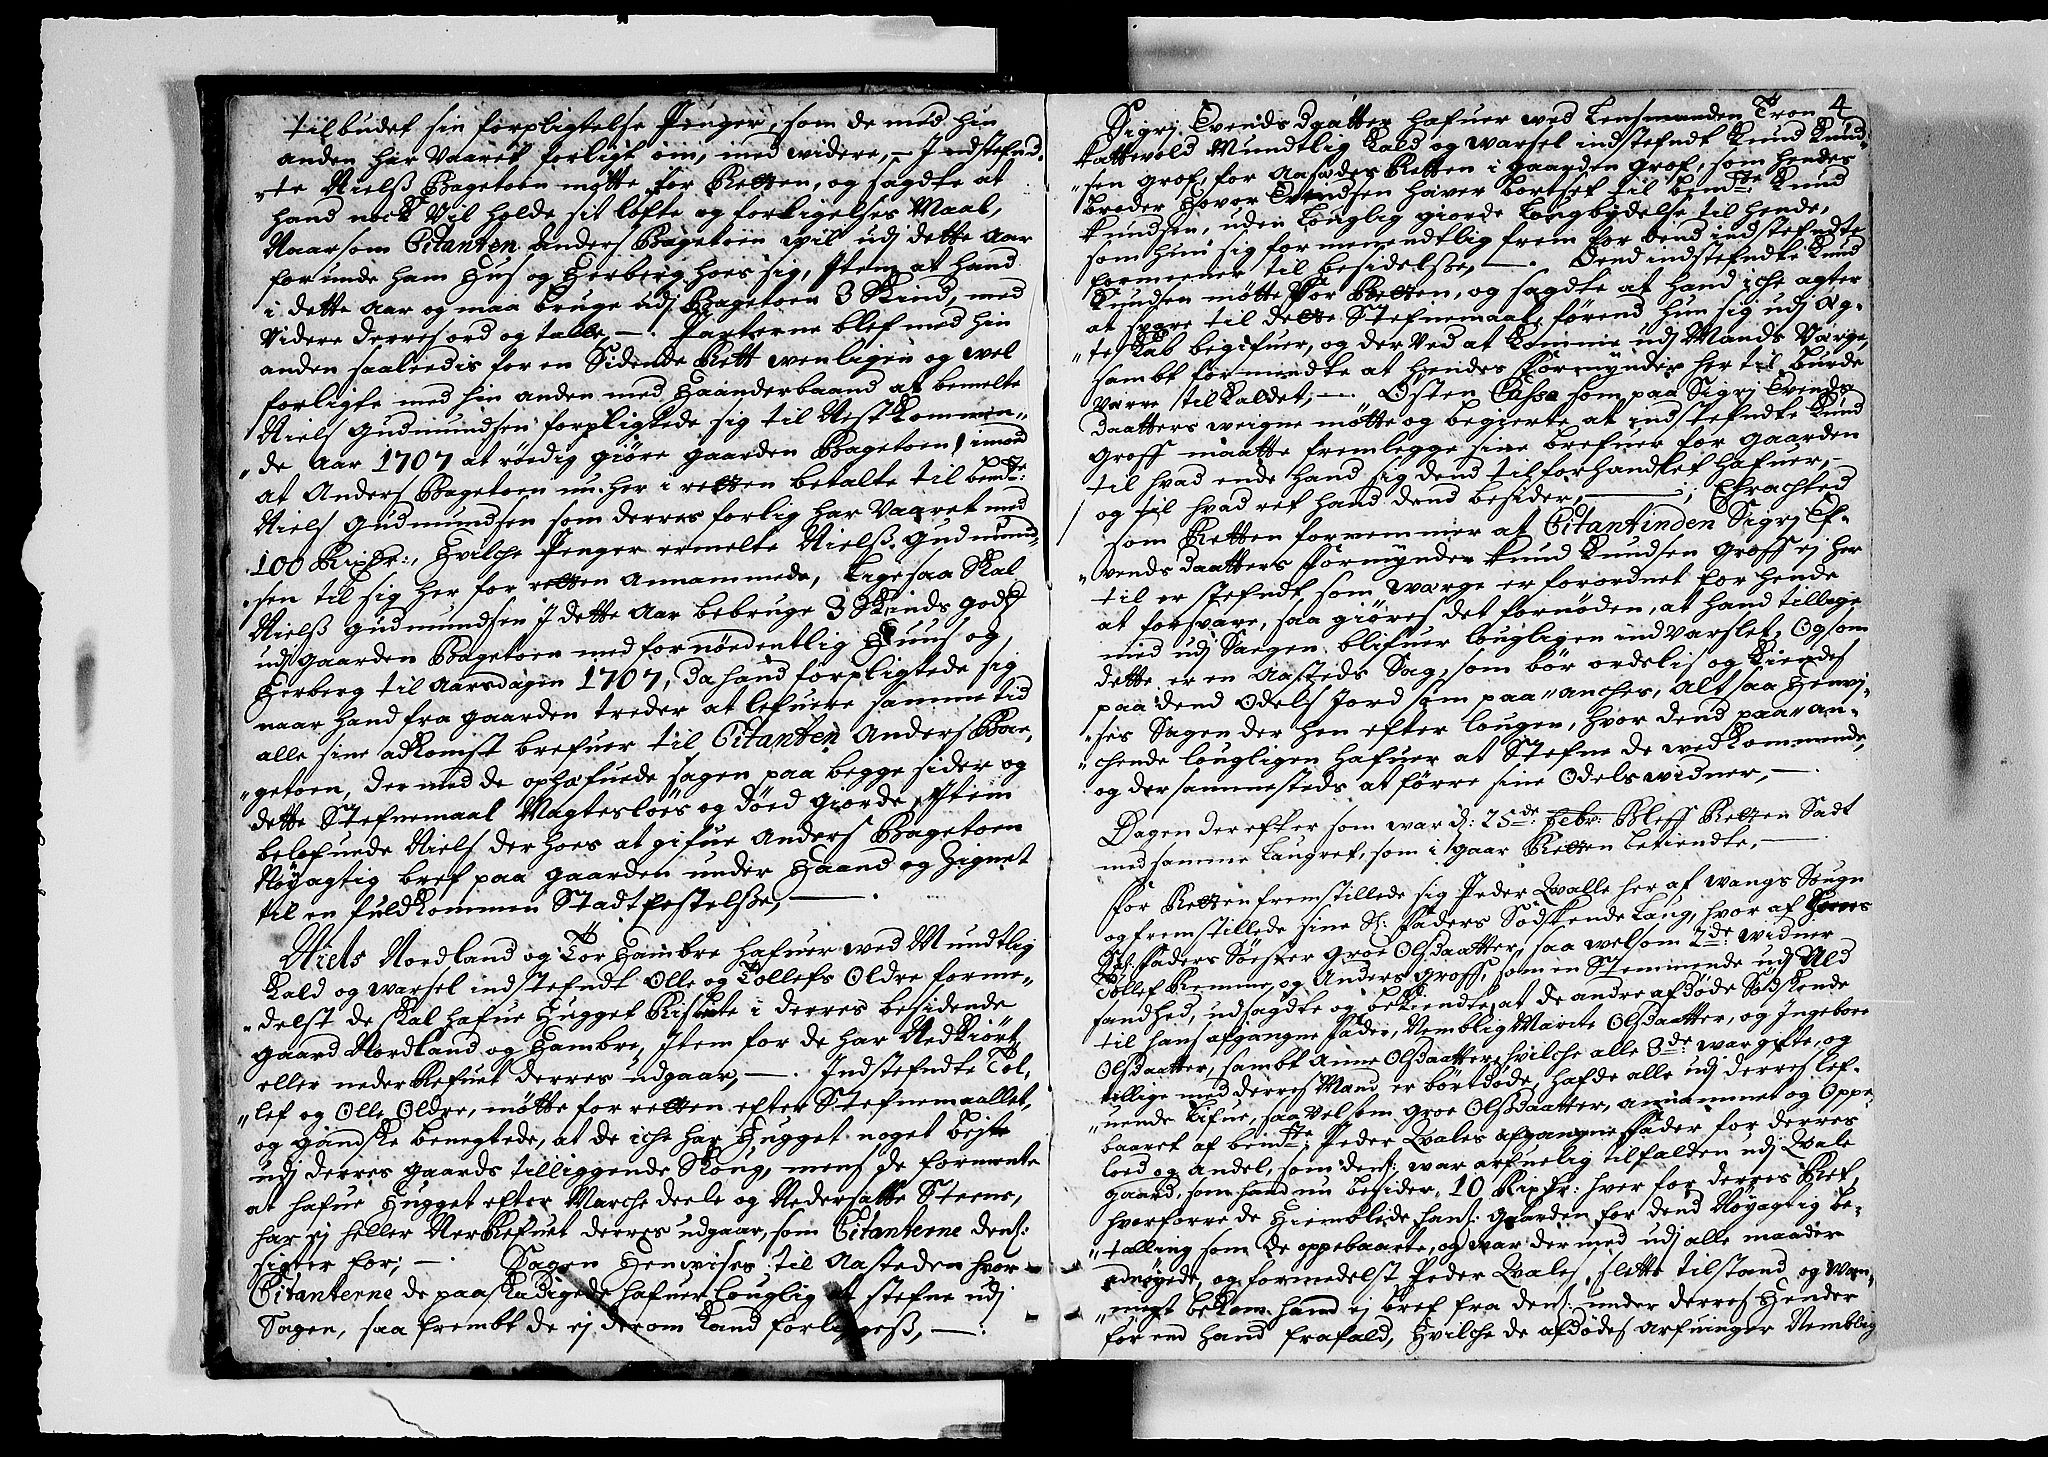 tilbudet sin forpligtelse Penger, som de med hin
anden har Vaaret forligt om, med widere, — Indstefnd-
"te Nielß Bagetoen møtte for Retten, og sagdte at
hand nock Vil holde sit løfte og forligelses Maal,
Naarsom Citanten Anders Bagetoen wil udj dette Aar
forunde ham Hus og Herberg hoes sig, Item at hand
i dette Aar og maa bruge udj Bagetoen 3 Skind, med
Videre derres ord og talle, — . Parterne blef med hin
anden saaleedis for en Sidende Rett wenligen og wel
forligte med hin anden med Haanderbaand at bemelte
Niels Gudmundsen forpligtede sig til Nestkommen-
"de Aar 1707 at røedig giøre gaarden Bagetoen imod
at Anders Bagetoen nu her i retten betalte til bemte:
Niels Gudmundsen som derres forlig har Vaaret med
100 Rixdr:, Hvilche Penger ermelte Nielß Gudmund-
"sen til sig her for retten Annammede, Ligesaa Skal
Nielß Gudmundsen J dette Aar bebruge 3 Skinds godz
udj gaarden Bagetoen med fornøedentlig Huus og
Herberg til Aarsdagen 1707, da hand forpligtede sig
naar hand fra gaarden treder at lefuere samme tid
alle sine adkomst brefuer til Citanten Anders Ba-
"getoen, der med de ophæfuede sagen paa begge sider og
dette Stefnemaal Magtesløes og døed giorde, Item
belofuede Niels der hoes at gifue Anders Bagetoen
Nøyagtig bref paa gaarden under Haand og Zignet
til en fuldkommen Stadtfestelße, — .
Niels Nordland og Tor Hambre hafuer wed Mundtlig
Kald og warsel indstefndt Olle og Tollefs Oldre forme-
"delst de skal hafue Hugget i derres besidende
gaard Nordland og Hambre, Item for de har Nedkiørt
eller nederRefuet derres udgaar, — . Indstefndte Tol-
"lef og Olle Oldre, møtte for retten efter Stefnemaallet,
og gandske benegtede, at de iche har Hugget noget bejte
udj derres gaards tilliggende Skoug, mens de formente
at hafue Hugget efter Marche deele og Nedersatte Steens,
har ej heller NerRefuet derres udgaar, som Citanterne dem:
sigter for; — . Sagen Henvises til Aasteden hvor
Citanterne de paaskadigede hafuer louglig at stefne udj
Sagen, saa frembt de ej derom kand forligess, — :
4
Sigrj Evends daatter hafuer wed Lensmanden Tron
Kattevold Mundtlig Kald og warsel indstefndt Knud Knud-
"sen Grof, for Aasædes Retten i gaarden Grof, som hendes
broder Hovor Evendsen haver bortset til bemte Knud
Knudsen, uden louglig giorde Lougbydelse til hende,
som hun sig formeendtlig frem for dend indstefndte
formeener til besidelße, — . Dend indstefndte Knud
Knudsen møtte for Retten, og sagdte at hand iche agter
at svare til dette Stefnemaal, førend hun sig udj Æg-
"teskab begifuer, og der Ved at komme udj Mands Værge,
sambt formendte at Hendes Formynder her til burde
Værre tilkaldet, — . Østen som paa Sigrj Evends-
daatters weigne møtte og begierte at indstefndte Knud
Groff maatte fremlegge sine brefuer for gaarden
til hvad ende hand sig dend tilforhandlet hafuer,
og til hvad ret hand dend besider, — ; Eftrachted
som Retten fornemmer at Citantinden Sigrj Ef-
"vends daatters Formynder Knud Knudsen Groff ej her
til er stefndt, som wærge er forordnet for hende
at forsvare, saa giøres det fornøden, at hand tillige
med udj Sagen blifuer lougligen indvarslet, Og som
dette er en Aasteds Sag, som bør ordelis og Kiendes
paa dend Odels Jord som paa"anches, Alt saa Henvj-
"ses Sagen der hen efter lougen, hvor dend paa"an-
"chende lougligen hafuer at Stefne de wedkommende,
og der sammesteds at førre sine Odels widner, — .
Dagen der efter som war d: 25de Febr: Bleff Retten Sadt
med samme Laugret, som i gaar Retten bekiendte, —
For Retten fremstillede sig Peder Qvalle her af wangs Sougn
og fremstillede sine Sl: faders Sødskende Laug, hvor af
Sal: faders Søester Groe Olsdaatter, saa welsom 2de widner
Tollef Remme og Anders Groff, som en Stemmende udj Ald
sandhed, udsagdte og bekiendte, at de andre afdøde Sødskende
til hans afgangne fader, Nemblig Marite Olsdaatter, og Ingebore
Olsdaatter, sambt Anne Olsdaatter, hvilche alle 3de war gifte, og
tillige med derres Mand er bortdøde, hafde alle udj derres lef-
"uende Lifue, saa Vel som Groe Olsdaatter, annammet og Oppe
baaret af bemte Peder Qvales afgangne fader for derres
loed og Andel, som dem: war arfuelig tilfalden udj Qvale
gaard, som hand nu besider, 10 Rixdr: hver for derres Ret,
hvorforre de Hiemblede hans: gaarden for dend Nøyagtig be-
"talling som de oppebaarte, og war der med udj alle maader
ednøyede, og formedelst Peder Qvales slette tilstand og Wan-
"magt bekom hand ej bref fra dem: under derres Hender
for end hand frafald, Hvilche de afdødes Arfuinger Nemblig